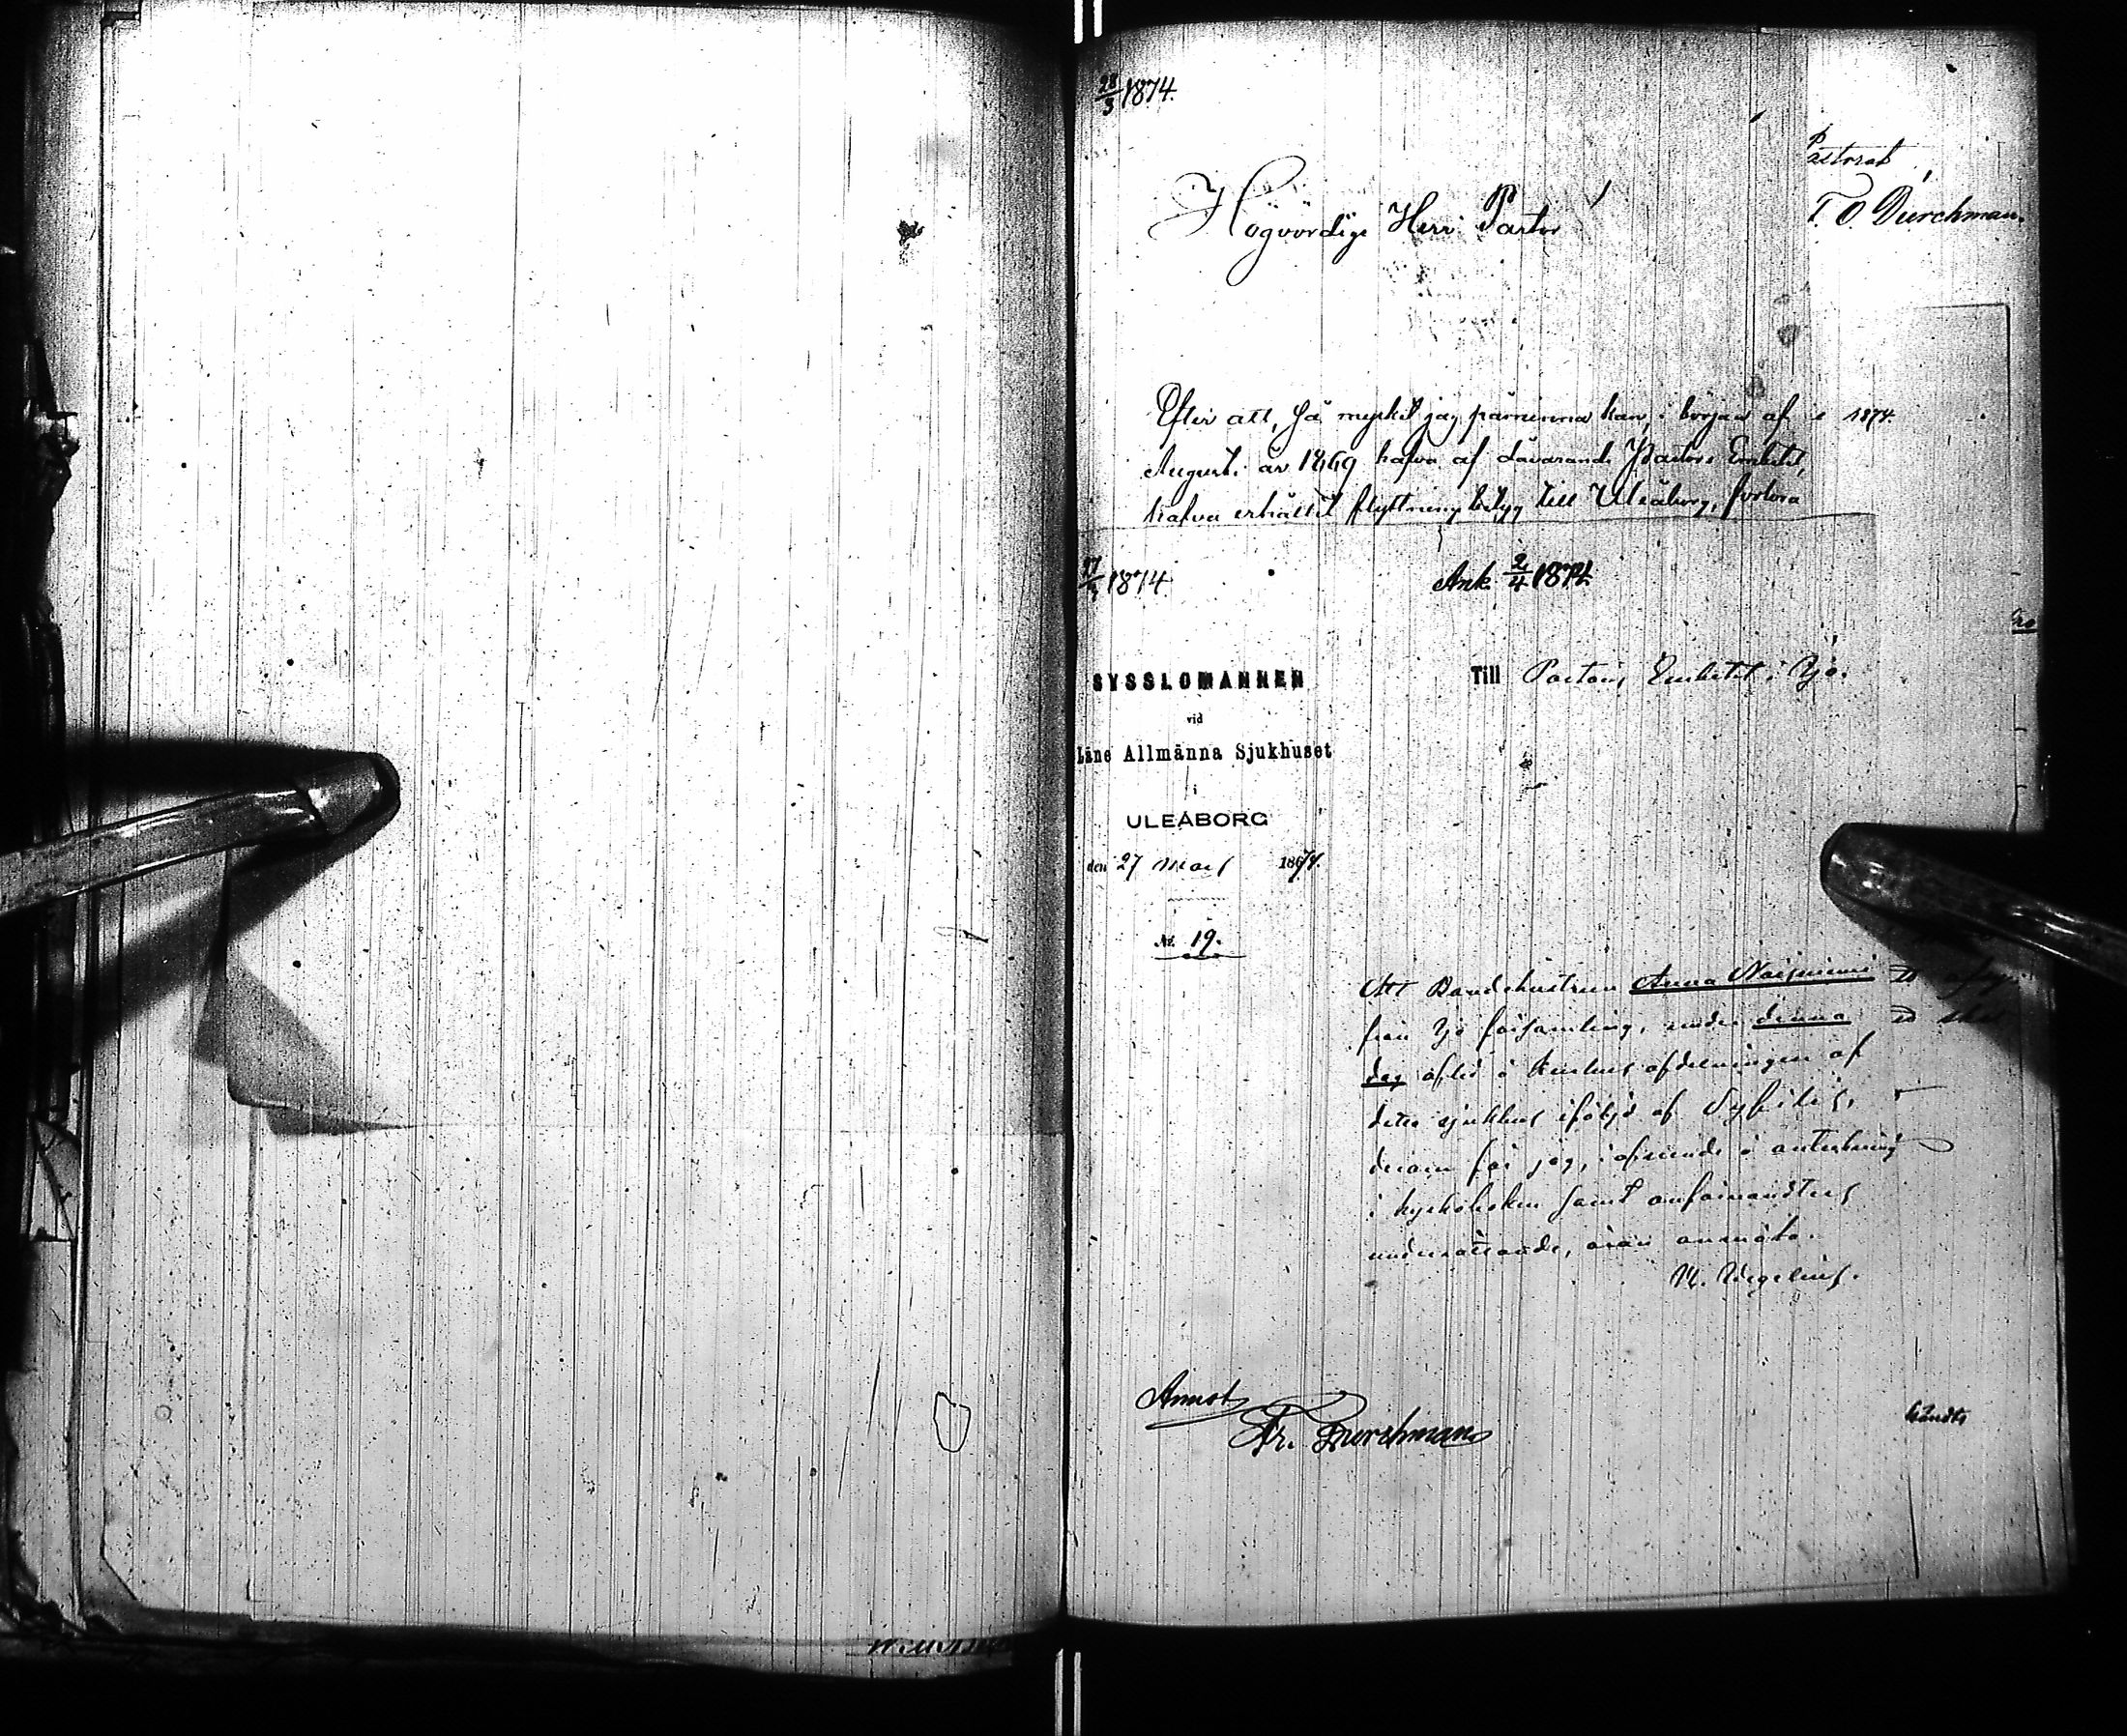 28/3 1874.
Pastorat
T. O. Durchman.
Högvördige Herr Pastor
Efter att, så mycket jag påminna kan, i början af 1874.
Augusti år 1869 hafva af dåvarande Pastors Embetet,
hafva erhållit flyttningsbetyg till Uleåborg, förlora
27/3 1874 Ank 2/4 1874
SYSSLOMANNEN
vid
Läns Allmänna Sjukhuset
i
ULEÅBORG
den 27 Mars 1874.
№ 19.
Till Pastors Embetet i Ijo.
Att Bondehustrun Anna
från Ijo församling, under denna
dag aflid å Kurhus afdelningen af
detta sjukhus iföljd af Syfilis,
derom får jag, i afseende å anteckning
i kyrkoboken samt anförvandters
underrättande, äran anmäla.
Annot
Fr. Durchman
händt